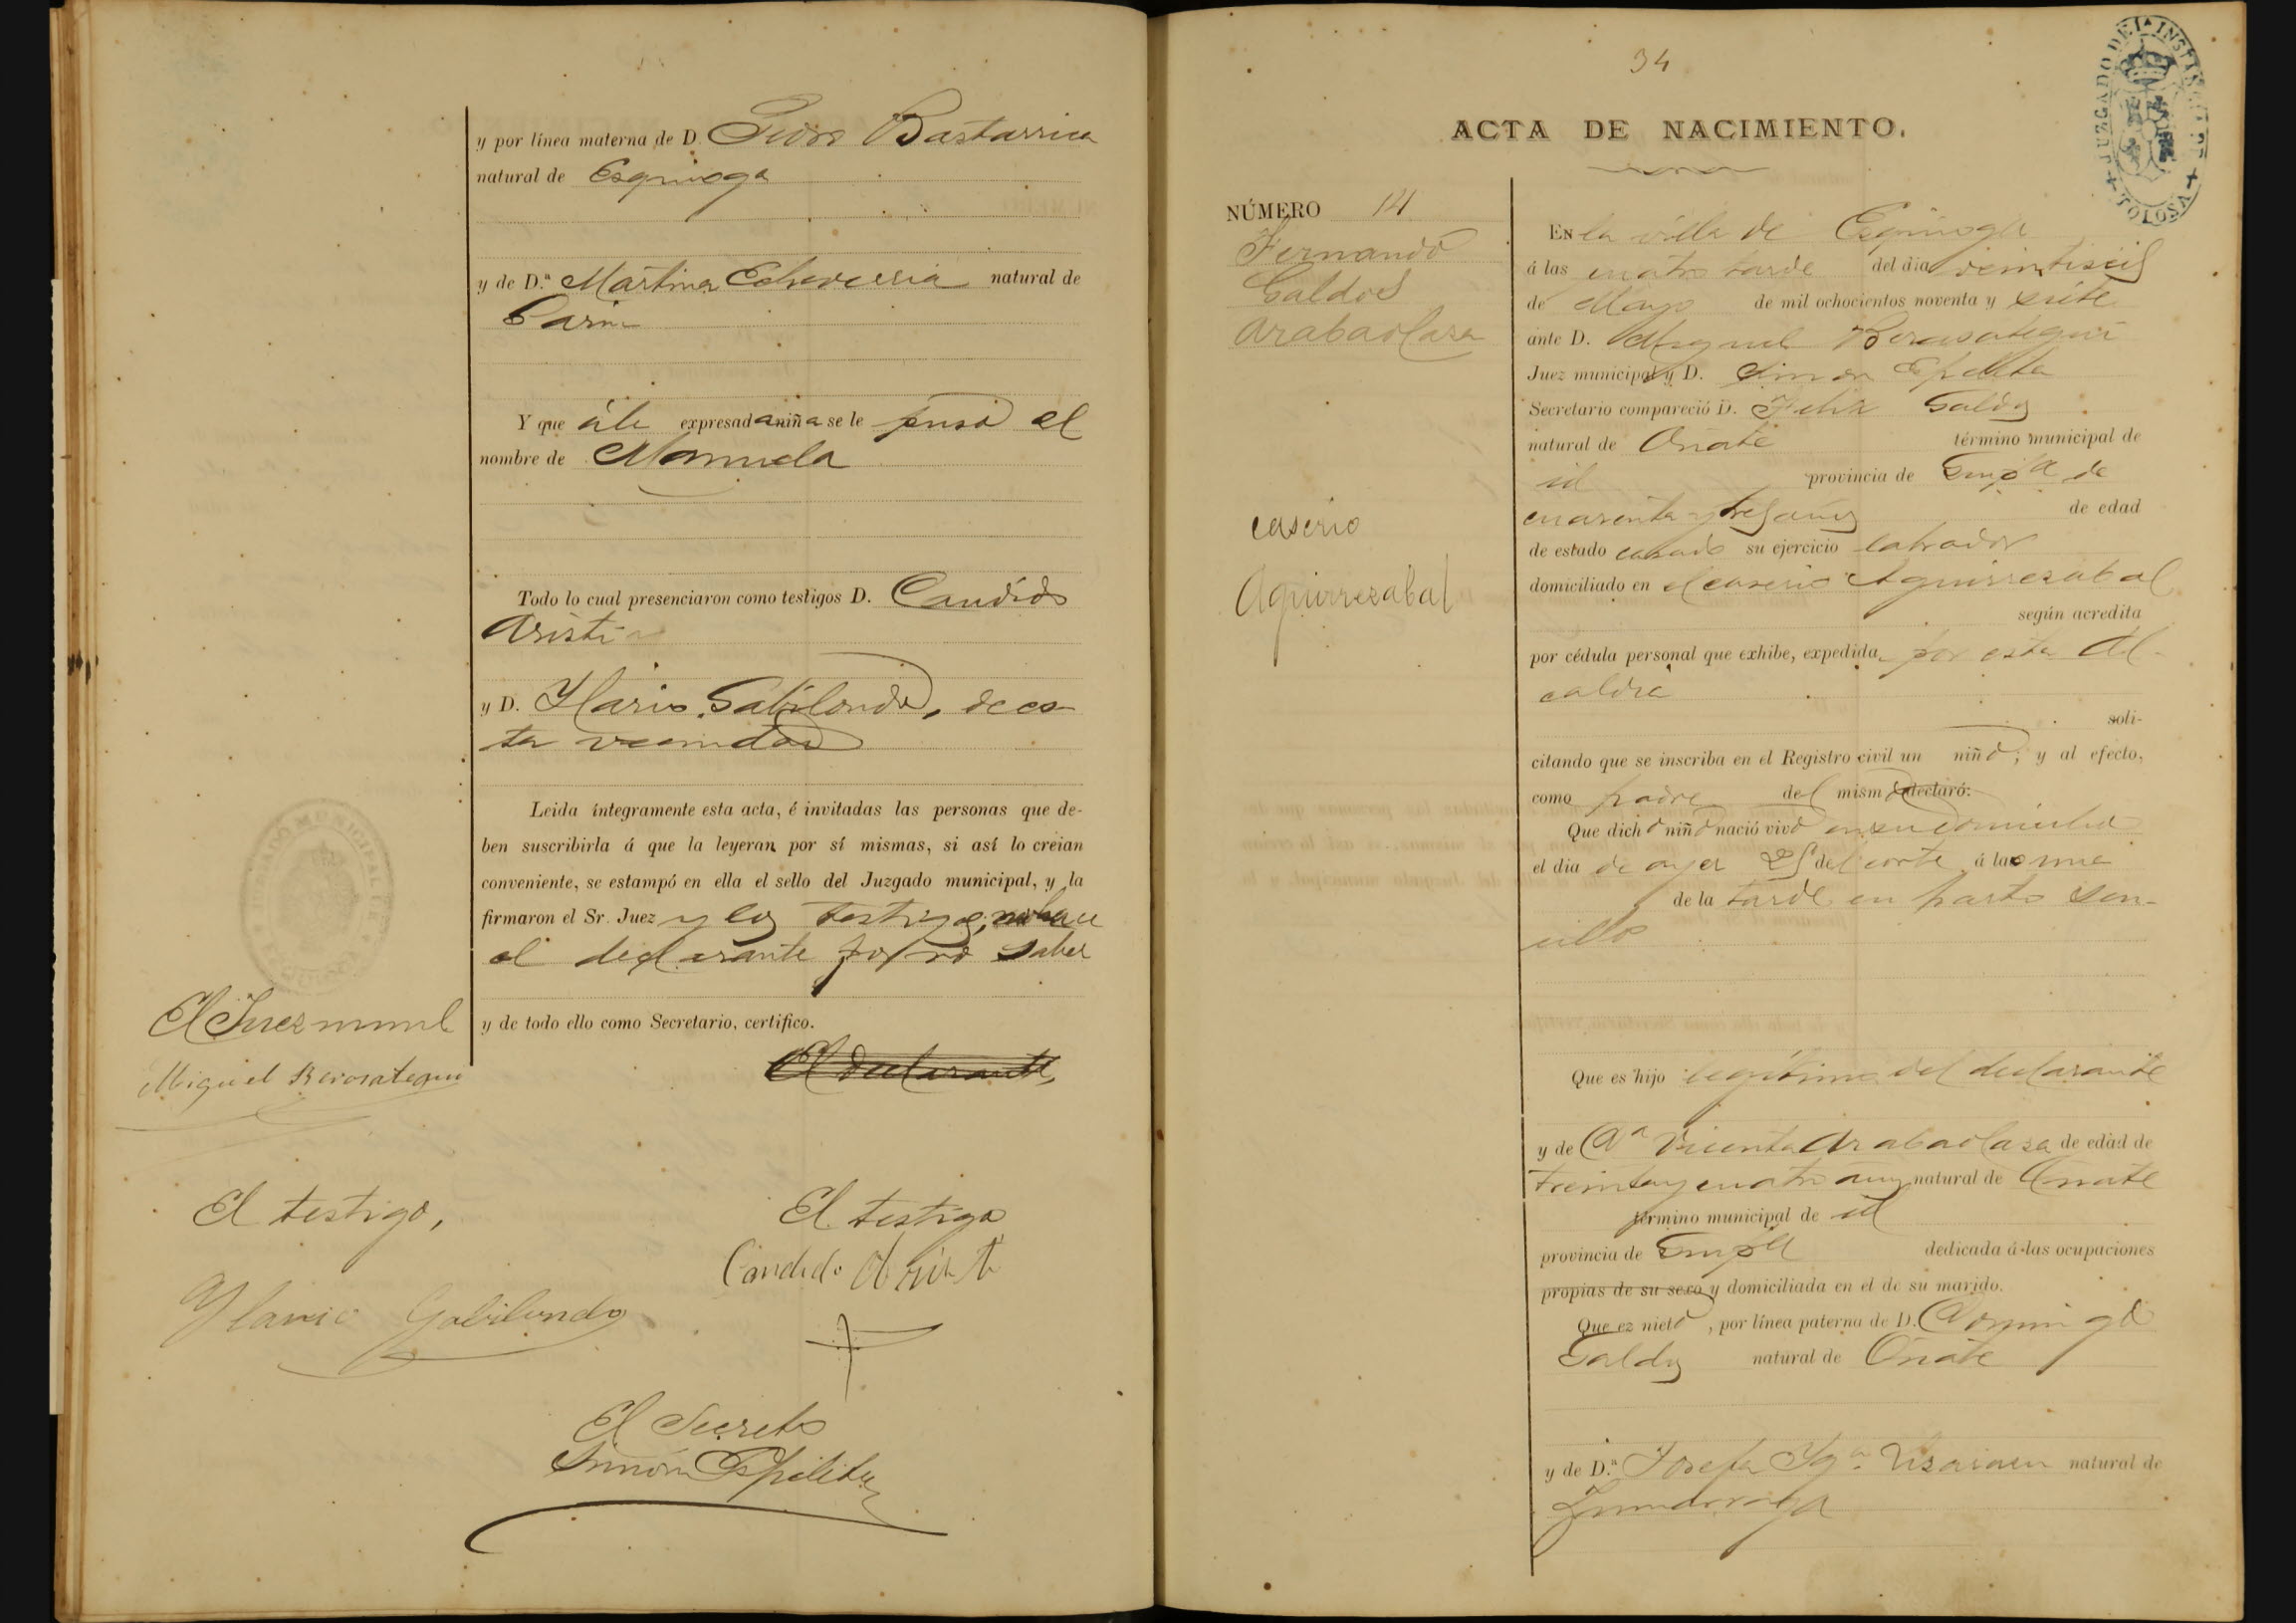 y por línea materna de D. Pedro Bastarrica
natural de Esquioga
y de D.ª Martina Echeverria natural de
Garin
Y que á la expresada niña se le puso el
nombre de Manuela
Todo lo cual presenciaron como testigos D. Candido
Aristi
y D. Ylario Gabilondo, de es-
ta vecindad
Leida íntegramente esta acta, é invitadas las personas que de-
ben suscribirla á que la leyeran por sí mismas, si así lo creian
conveniente, se estampó en ella el sello del Juzgado municipal, y la
firmaron el Sr. Juez y los testigos, no
el declarante por no saber
y de todo ello como Secretario, certifico.
El Juez munl
Miguel Berasategui
El declarante,
El testigo,
Ylario Gabilondo
El testigo
Candido Aristi
El Secreto
Simón Ezpelita
JUZGADO MUNICIPAL DE
34
JUZGADO DE 1ª INSTANCIA DE TOLOSA
ACTA DE NACIMIENTO.
NÚMERO 14
Fernando
Galdos
Arabaolaza
caserio
Aguirrezabal
EN la villa de Esquioga
á las cuatro tarde del dia veintiseis
de Mayo de mil ochocientos noventa y siete
ante D. Miguel Berasategui
Juez municipal y D. Simon Ezpelita
Secretario compareció D. Felix Galdos
natural de Oñate término municipal de
id provincia de Guipª de
cuarenta y tres años de edad
de estado casado su ejercicio labrador
domiciliado en el caserio Aguirrezabal
según acredita
por cédula personal que exhibe, expedida por esta Al-
caldia
soli-
citando que se inscriba en el Registro civil un niño; y al efecto,
como padre del mismo declaró:
Que dicho niño nació vivo en su domicilio
el dia de ayer 25 del corte á la una
de la tarde en parto sen-
cillo
Que es hijo legítimo del declarante
y de Dª Vicenta Arabaolaza de edad de
treinta y cuatro años natural de Oñate
término municipal de id
provincia de Guipª dedicada á las ocupaciones
propias de su sexo y domiciliada en el de su marido.
Que es nieto, por línea paterna de D. Domingo
Galdos natural de Oñate
y de D.ª Josefa Igª natural de
Zumarraga